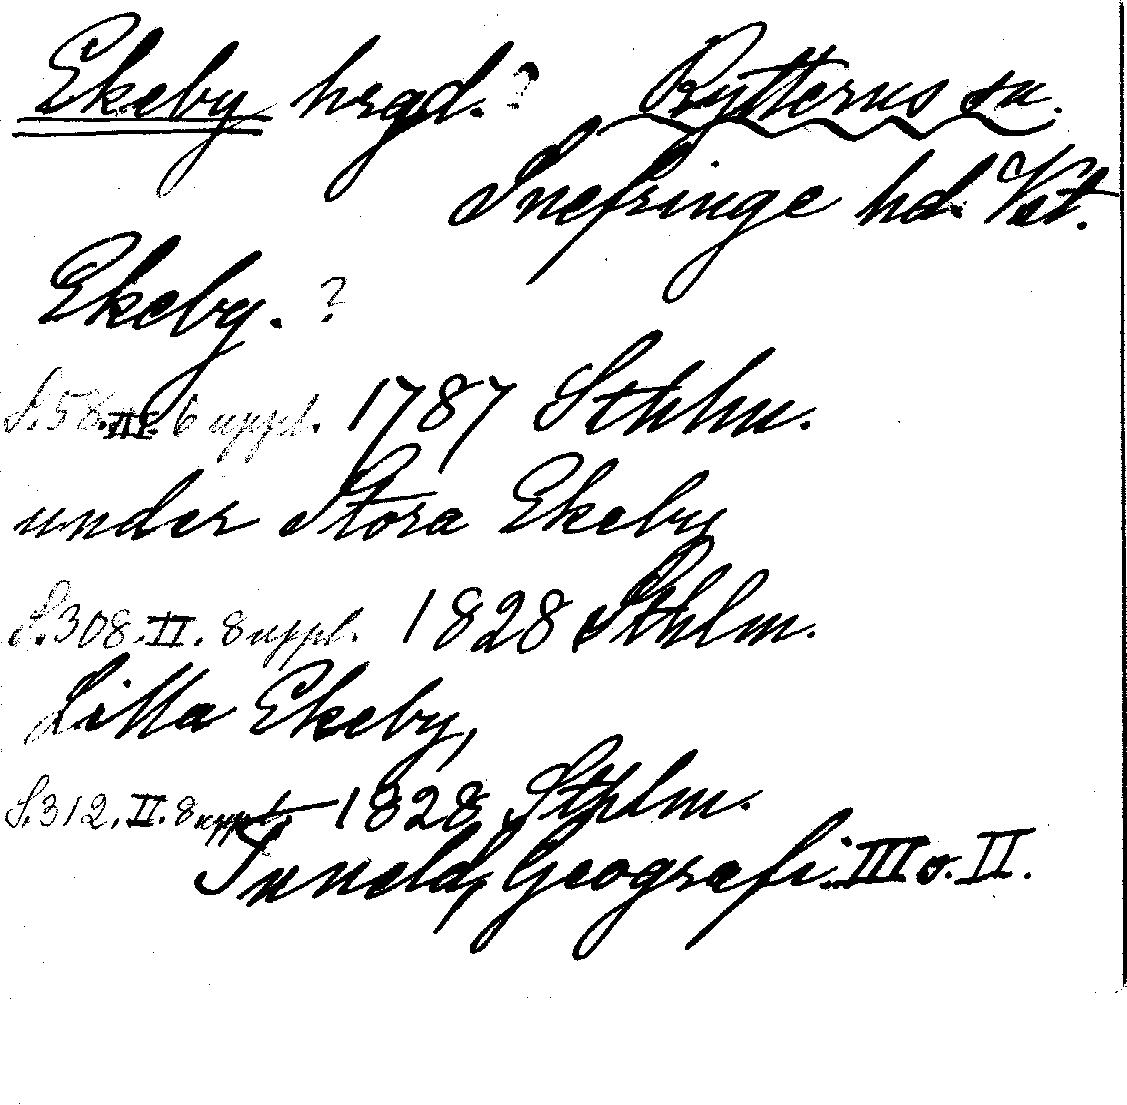 Ekeby hrgd. ? Rytterns sn.
Snefringe hd. Vst.
Ekeby. ?
S. 58. III. 6 uppl. 1787 Sthlm.
under Stora Ekeby
S. 308. II. 8 uppl. 1828 Sthlm.
Lilla Ekeby,
S. 312. II. 8 uppl. 1828 Sthlm.
Tuneld, Geografi. III o. II.